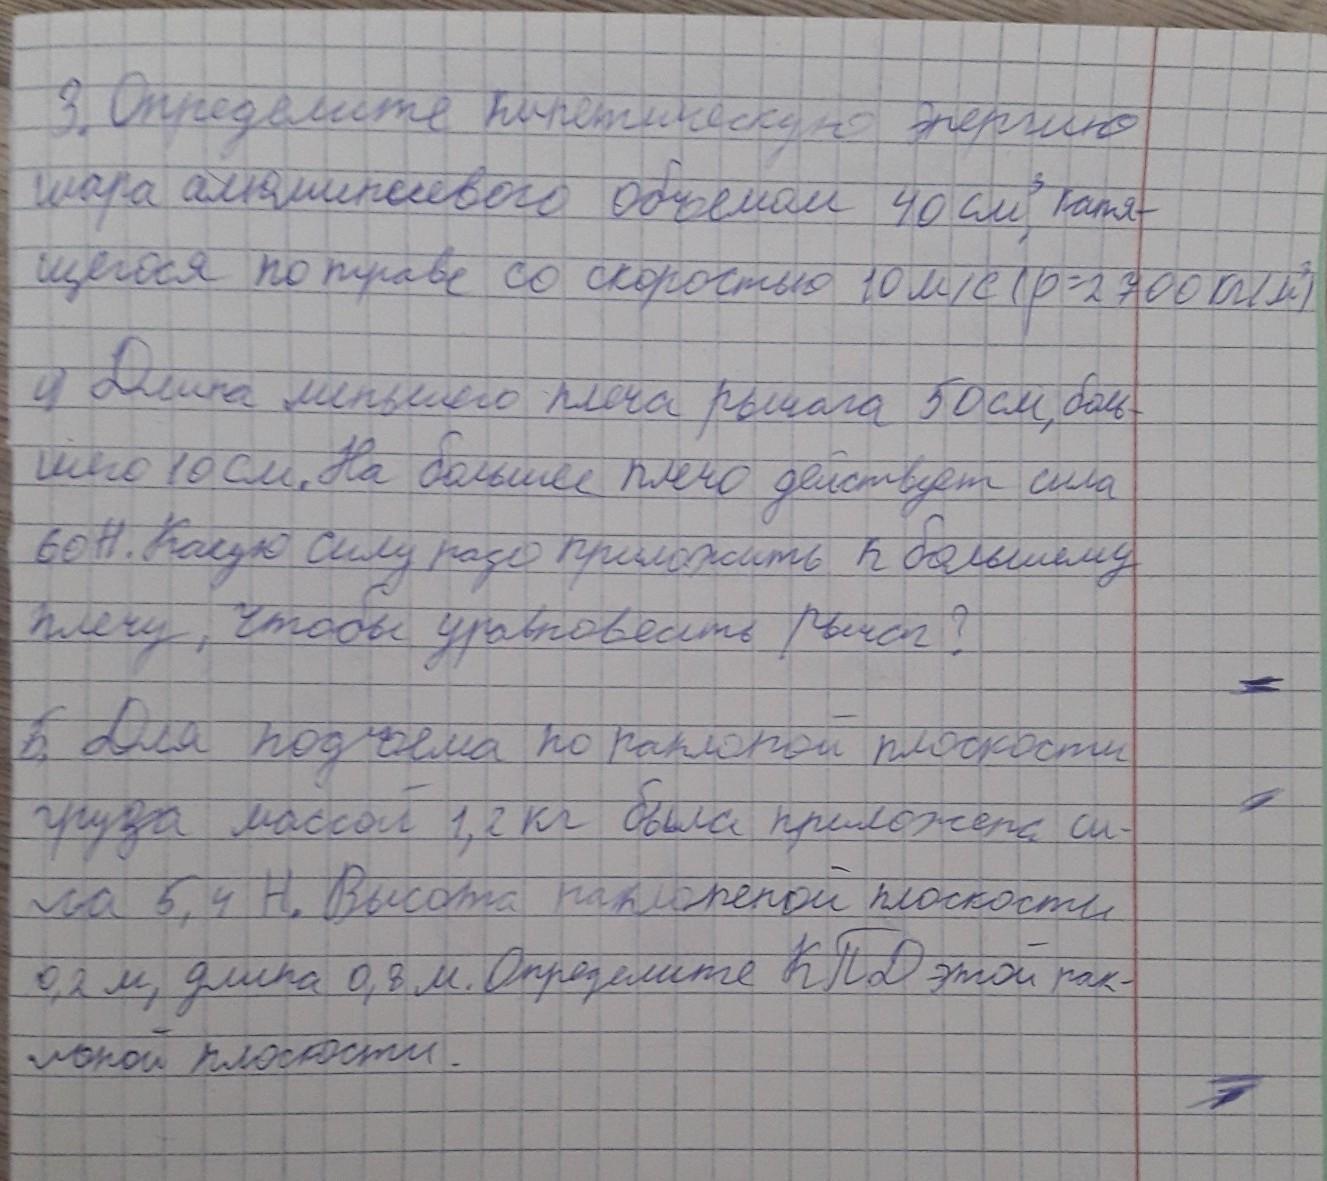 3. Определите кинетическую энергию
шара алюминиевого объемом 40 см³, катя-
щегося по траве со скоростью 10 м/с (ρ=2700 кг/м³)
4) Длина меньшего плеча рычага 50 см, боль-
шего 10 см. На большее плечо действует сила
60 Н. Какую силу надо приложить к большему
плечу, чтобы уравновесить рычаг?
5. Для подъема по наклоной плоскости
груза массой 1,2 кг была приложена си-
ла 5,4 Н. Высота наклоненой плоскости
0,2 м, длина 0,8 м. Определите КПД этой нак-
льной плоскости.